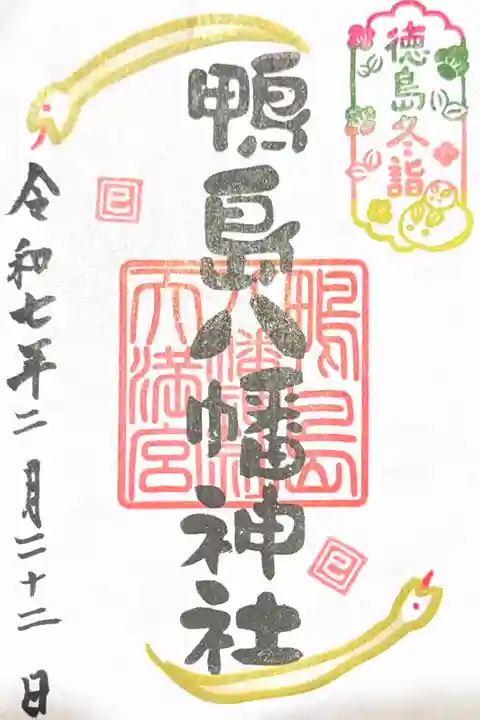 徳島冬詣
鴨島八幡神社
鴨島
八幡神社
天満宮
巳
巳
令和七年二月二十二日